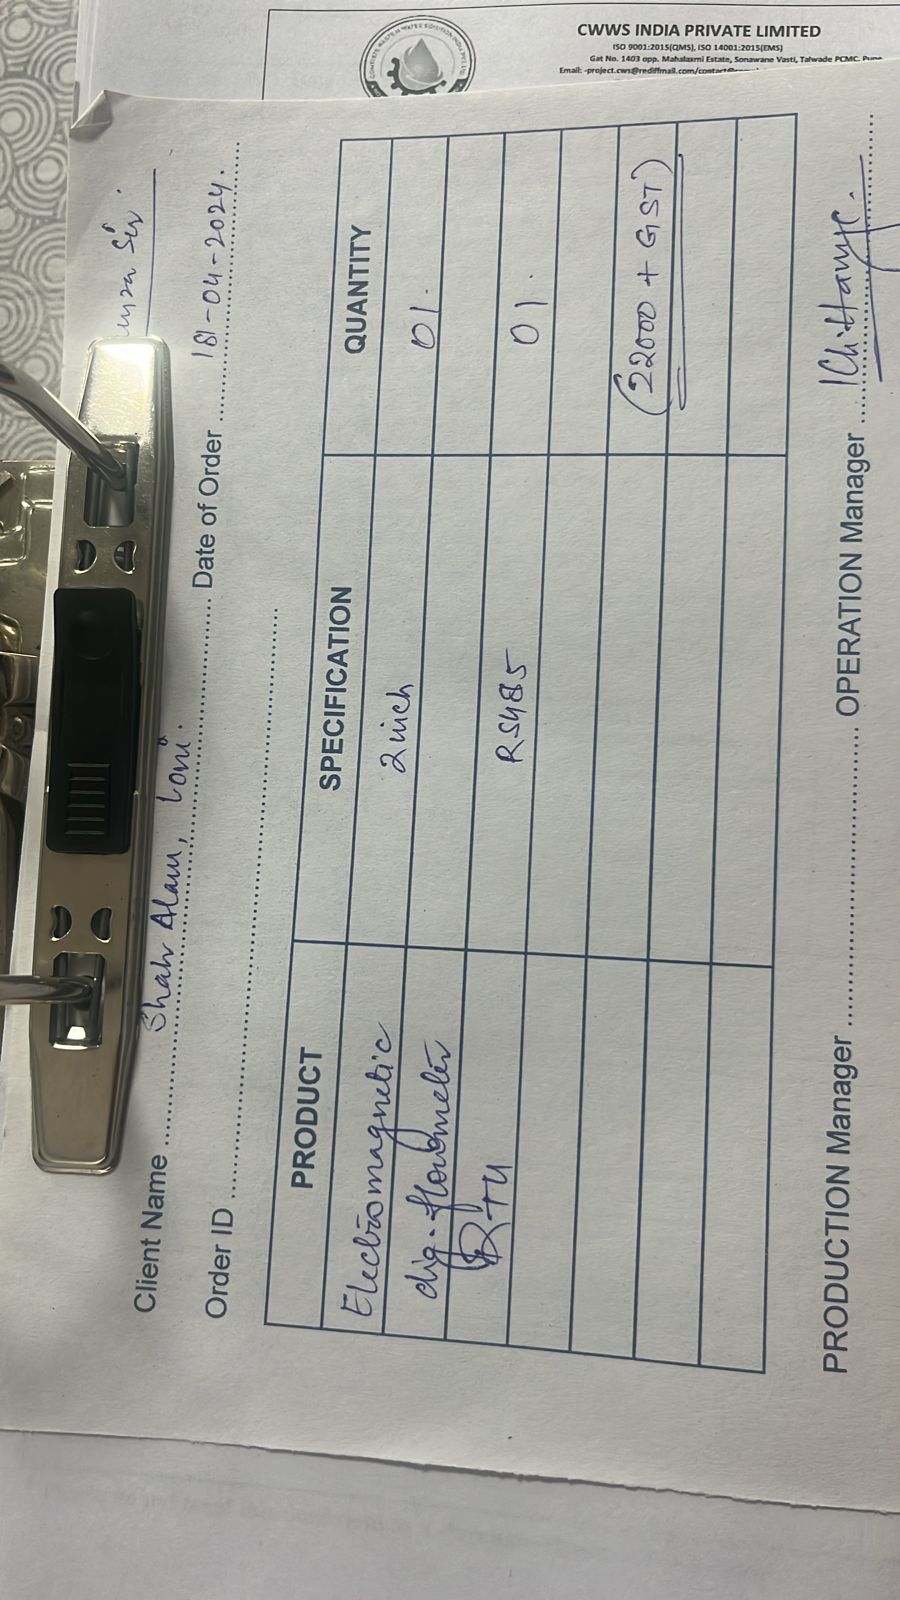 CWWS INDIA PRIVATE LIMITED
ISO 9001:2015(QMS), ISO 14001:2015(EMS)
Gat No. 1403 opp. Mahalaxmi Estate, Sonawane Vasti, Talwade PCMC, Pune
Email: -project.cws@rediffmail.com/contact
Sir.
Client Name Shah Alam, Loni.
Order ID Date of Order 18-04-2024.
PRODUCT SPECIFICATION QUANTITY
Electromagnetic 2 inch 01.
dig. flowmeter
RTU RS485 01.
(22000 + GST)
PRODUCTION Manager OPERATION Manager